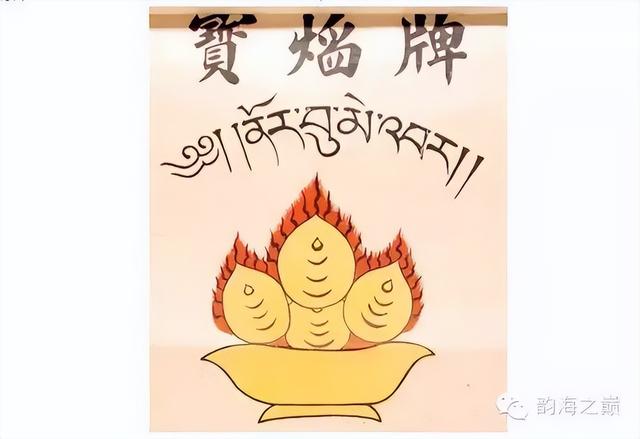 寶熖牌
༄༅། །ནོར་བུ་མེ་འབར། །
韵海之巅